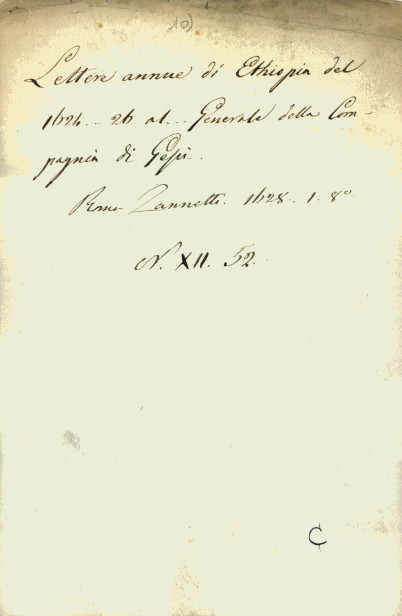 10)
Lettere annue di Ethiopia del
1624.. 26 al... Generale della Com-
pagnia di Gesù.
Roma Zannetti. 1628. 1. 8º
N. XII. 52.
C